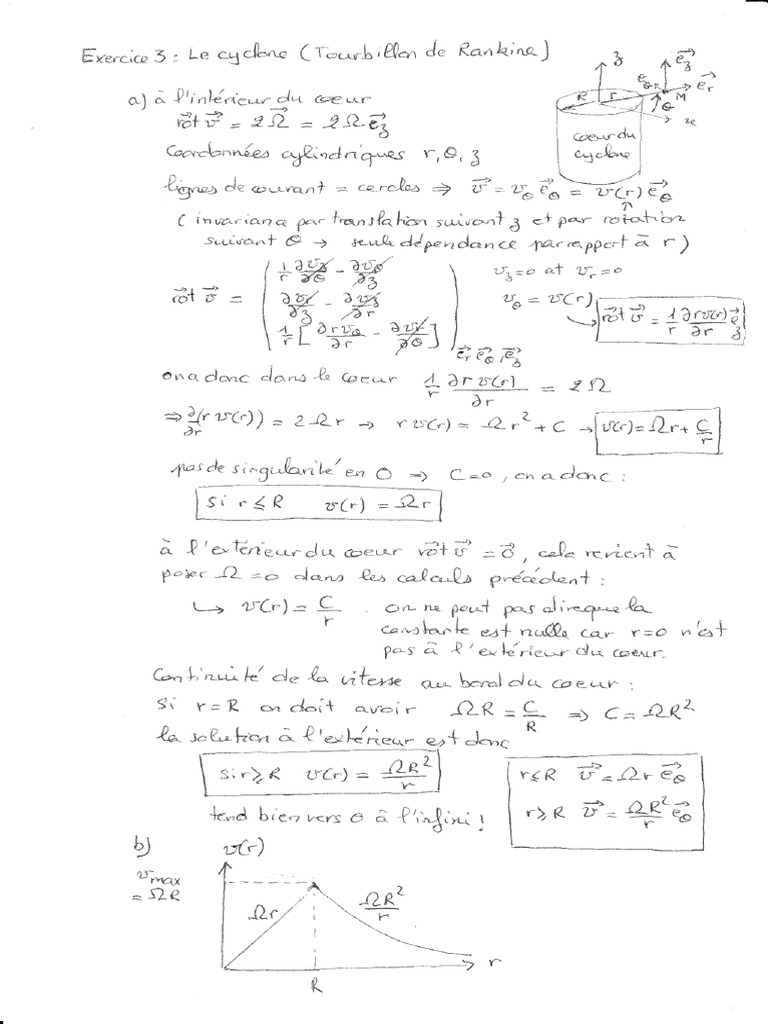 Exercice 3 : Le cyclone (Tourbillon de Rankine)
z e⃗_z e_θ e⃗_r
R r M θ x
coeur du
cyclone
a) à l'intérieur du coeur
rot⃗ v⃗ = 2 Ω⃗ = 2 Ω e⃗_z
Coordonnées cylindriques r, θ, z
lignes de courant = cercles ⇒ v⃗ = v_θ e⃗_θ = v(r) e⃗_θ
(invariance par translation suivant z et par rotation
suivant θ → seule dépendance par rapport à r)
rot⃗ v⃗ = ( 1/r ∂v_z/∂θ - ∂v_θ/∂z
∂v_r/∂z - ∂v_z/∂r
1/r [ ∂rv_θ/∂r - ∂v_r/∂θ ] ) e⃗_r, e⃗_θ, e⃗_z
v_z = 0 at v_r = 0
v_θ = v(r)
↪ rot⃗ v⃗ = 1/r ∂rv(r)/∂r e⃗_z
on a donc dans le coeur 1/r ∂rv(r)/∂r = 2Ω
⇒ ∂/∂r (r v(r)) = 2Ωr → r v(r) = Ωr² + C → v(r) = Ωr + C/r
pas de singularité en O ⇒ C=0, on a donc :
Si r ≤ R v(r) = Ωr
à l'extérieur du coeur rot⃗ v⃗ = 0⃗, cela revient à
poser Ω = 0 dans les calculs précédent :
↪ v(r) = C/r . on ne peut pas dire que la
constante est nulle car r=0 n'est
pas à l'extérieur du coeur.
Continuité de la vitesse au bord du coeur :
Si r = R on doit avoir ΩR = C/R ⇒ C = ΩR²
la solution à l'extérieur est donc
si r ≥ R v(r) = ΩR²/r
r ≤ R v⃗ = Ωr e⃗_θ
r ≥ R v⃗ = ΩR²/r e⃗_θ
tend bien vers 0 à l'infini !
b) v(r)
v_max
= ΩR
Ωr ΩR²/r
r
R